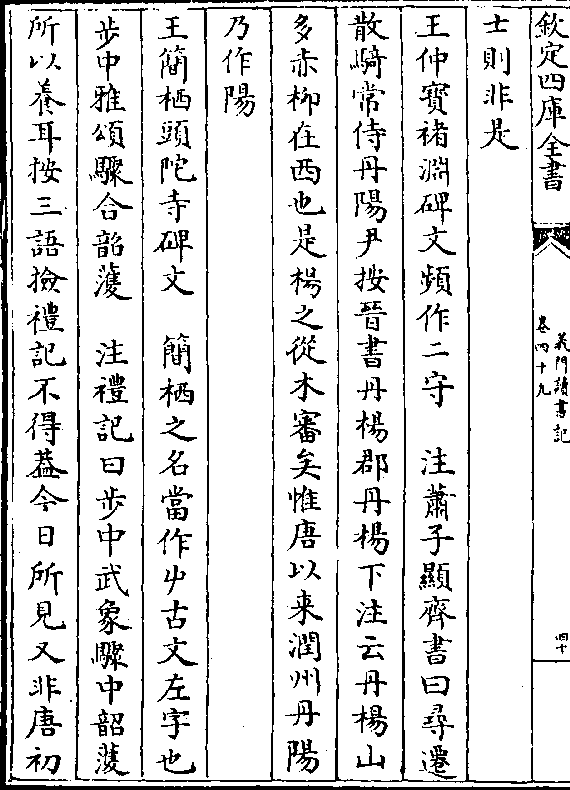 欽定四庫全書
義門讀書記
卷四十九
四十
士則非是
王仲寶褚淵碑文頻作二守　注蕭子顯齊書曰尋遷
散騎常侍丹陽尹按晉書丹楊郡丹楊下注云丹楊山
多赤柳在西也是楊之從木審矣惟唐以来潤州丹陽
乃作陽
王簡栖頭陀寺碑文　簡栖之名當作屮古文左字也
步中雅頌驟合韶頀　注禮記曰步中武象驟中韶頀
所以養耳按三語撿禮記不得葢今日所見又非唐初